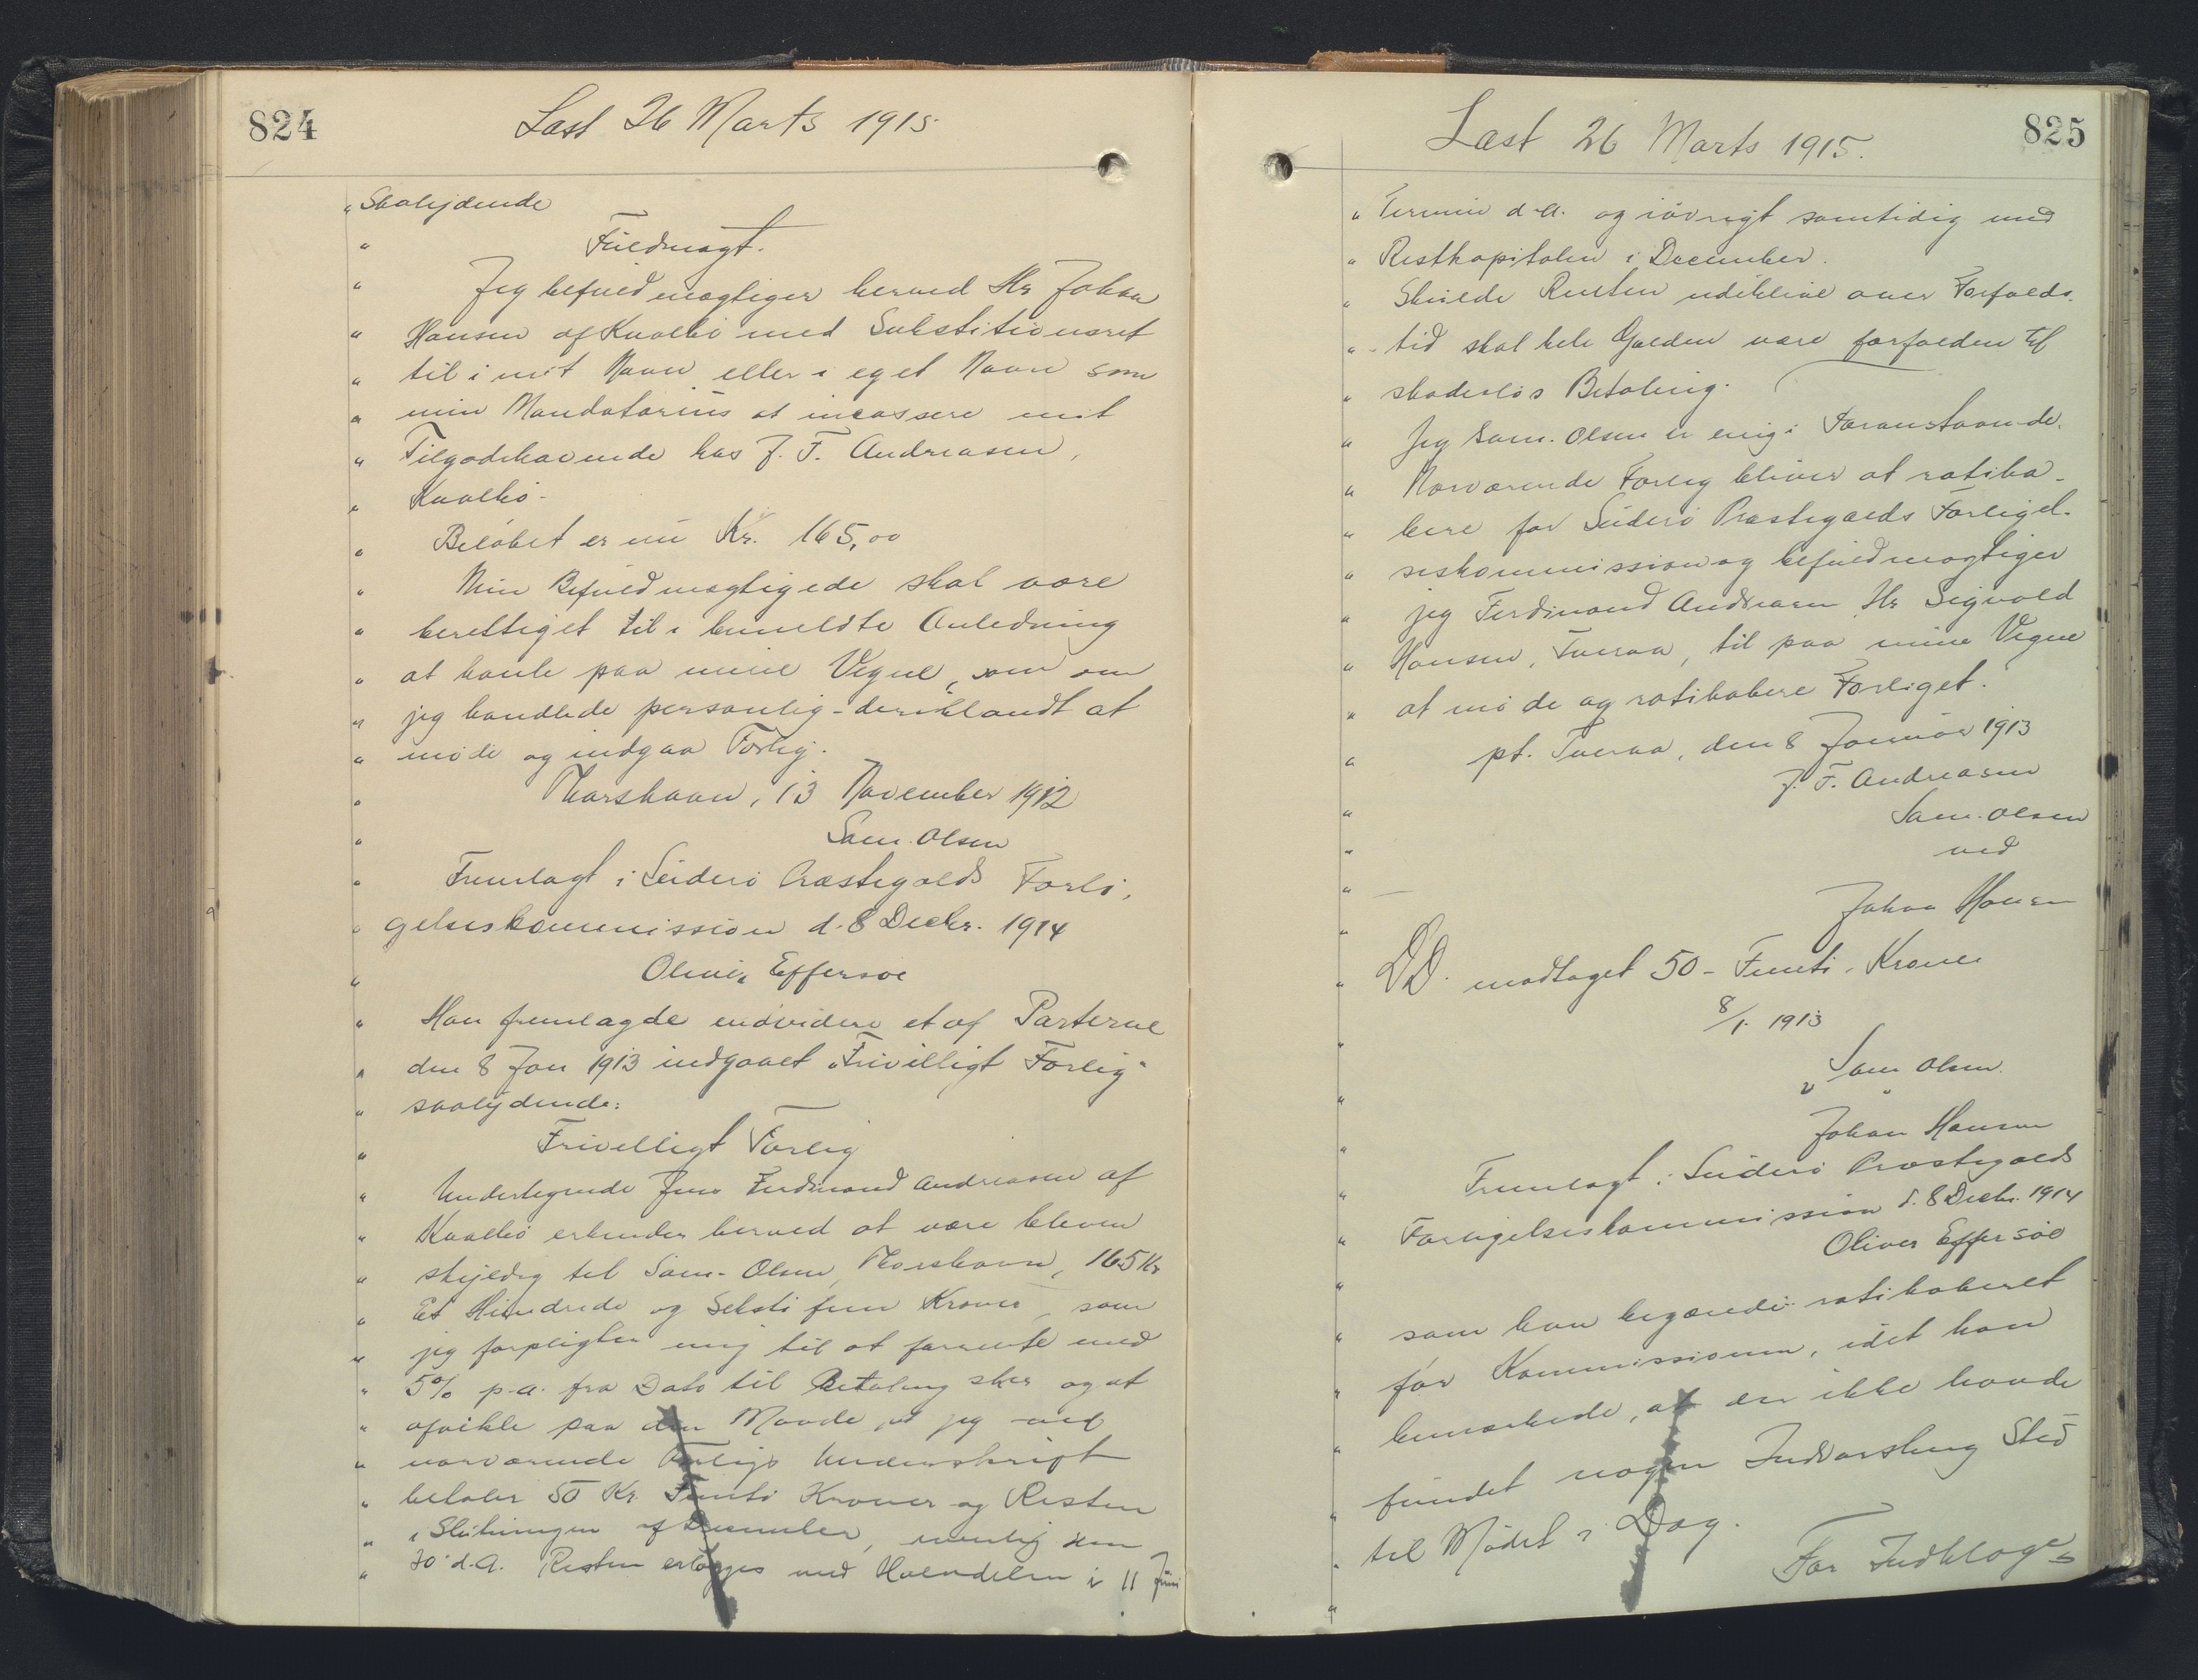 824
Læst 26 Marts 1915.
"Saalydende
" Fuldmagt.
" Jeg befuldmægtiger herved Hr Johan
" Hansen af Kvalbø med Substitionsret
" til i mit Navn eller i eget Navn som
" min Mandatarius at incassere mit
" Tilgodehavende hos J. F. Andreasen,
" Kvalbø.
" Beløbet er nu Kr. 165,00
" Min Befuldmægtigede skal være
" berettiget til i bemeldte Anledning
" at handle paa mine Vegne, som om
" jeg handlede personlig - deriblandt at
" møde og indgaa Forlig.
" Thorshavn, 13 November 1912
" Sam. Olsen
" Fremlagt i Suderø Præstegælds Forli,
" gelseskommission d. 8 Decbr. 1914
" Oliver Effersøe
" Han fremlagde endvidere et af Parterne
" den 8 Jan 1913 indgaaet "Frivilligt Forlig"
" saalydende:
" Frivilligt Forlig
" Undertegnede Jens Ferdinand Andreasen af
" Kvalbø erkender herved at være bleven
" skyldig til Sam. Olsen, Thorshavn, 165 Kr
" Et Hundrede og Seksti fem Kroner, som
" jeg forpligter mig til at forrente med
" 5% p.a. fra Dato til Betaling sker og at
" afvikle paa den Maade, at jeg ved
" nærværende Forligs Underskrift
" betaler 50 Kr. Femti Kroner og Resten
" i Slutningen af December, nemlig den
" 30' d.A. Resten erlægges med Halvdelen i 11 Juni
825
Læst 26 Marts 1915.
" Termin d.A. og iøvrigt samtidig med
" Restkapitalen i December.
" Skulde Renten udeblive over Forfalds.
" tid skal hele Gælden være forfalden til
" skadesløs Betaling.
" Jeg Sam. Olsen er enig i Foranstaaende.
" Nærværende Forlig bliver at ratiha-
" bere for Suderø Præstegælds Forligel-
" seskommission og befuldmægtiger
" jeg Ferdinand Andreasen Hr Sigvald
" Hansen, Tveraa, til paa mine Vegne
" at møde og ratihabere Forliget.
" pt. Tveraa, den 8 Januar 1913
J. F. Andreasen
" Sam. Olsen
" ved
" Johan Hansen
" D.D. modtaget 50 - Femti - Kroner
8/1. 1913
" Sam Olsen.
v
" Johan Hansen
" Fremlagt i Suderø Præstegælds
" Forligelseskommission d. 8 Decbr. 1914
Oliver Effersøe
" som han begærede ratihaberet
" for Kommissionen, idet han
" bemærkede, at der ikke havde
" fundet nogen Indvarsling Sted
" til Mødet i Dag.
" For Indklagede